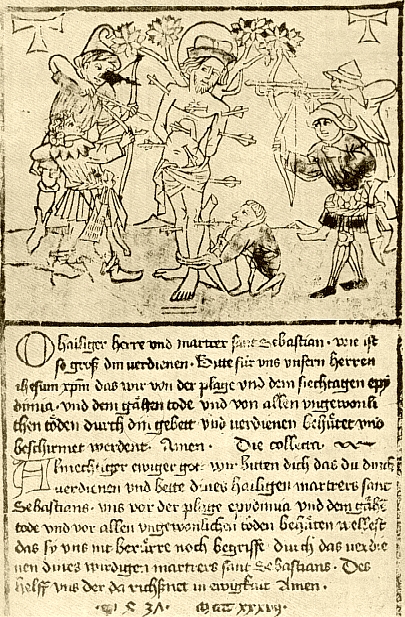 O hailiger herre vnd martrer sant Sebastian · wie ist
so groß din verdienen · Bitte für vns vnsern herren
ihesum xpm das wir von der plage vnd dem siechtagen epy
dimia · vnd dem gähen tode vnd von allen vngewonli
chen töden durch din gebett vnd verdienen behüttet vnd
beschirmet werdent · Amen · Die collecta
Almechtiger ewiger got · wir bitten dich das du durch
verdienen vnd bette dines hailigen martrers sant
Sebastians · vns vor der plage epydimia vnd dem gähen
tode vnd vor allen vngewonlichen töden behüten wellest
das sy vns nit berürre noch begriffe durch das verdie
nen dines wirdigen martrers sant Sebastians · Des
helff vns der da richßnet in ewigkait Amen ·